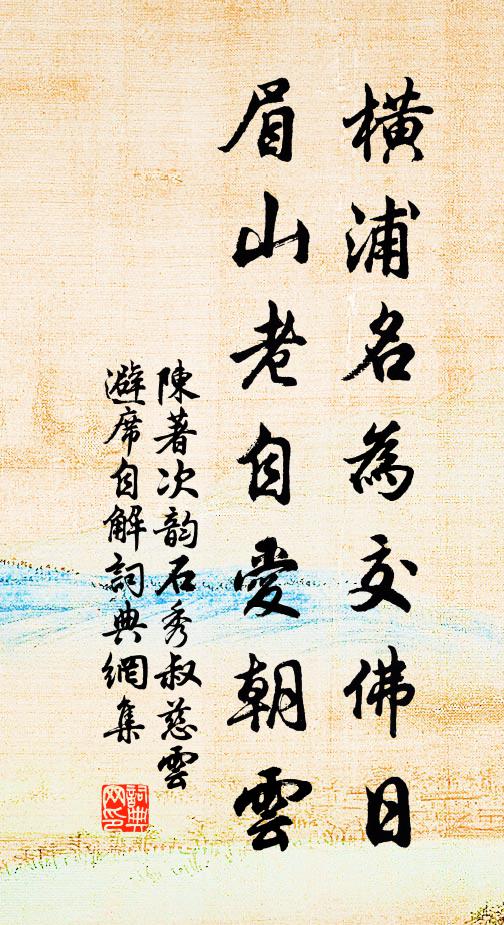 橫浦名為交佛日
眉山老自愛朝雲
陳著次韵石秀叔慈雲
避席自解詞典網集
詞典網印